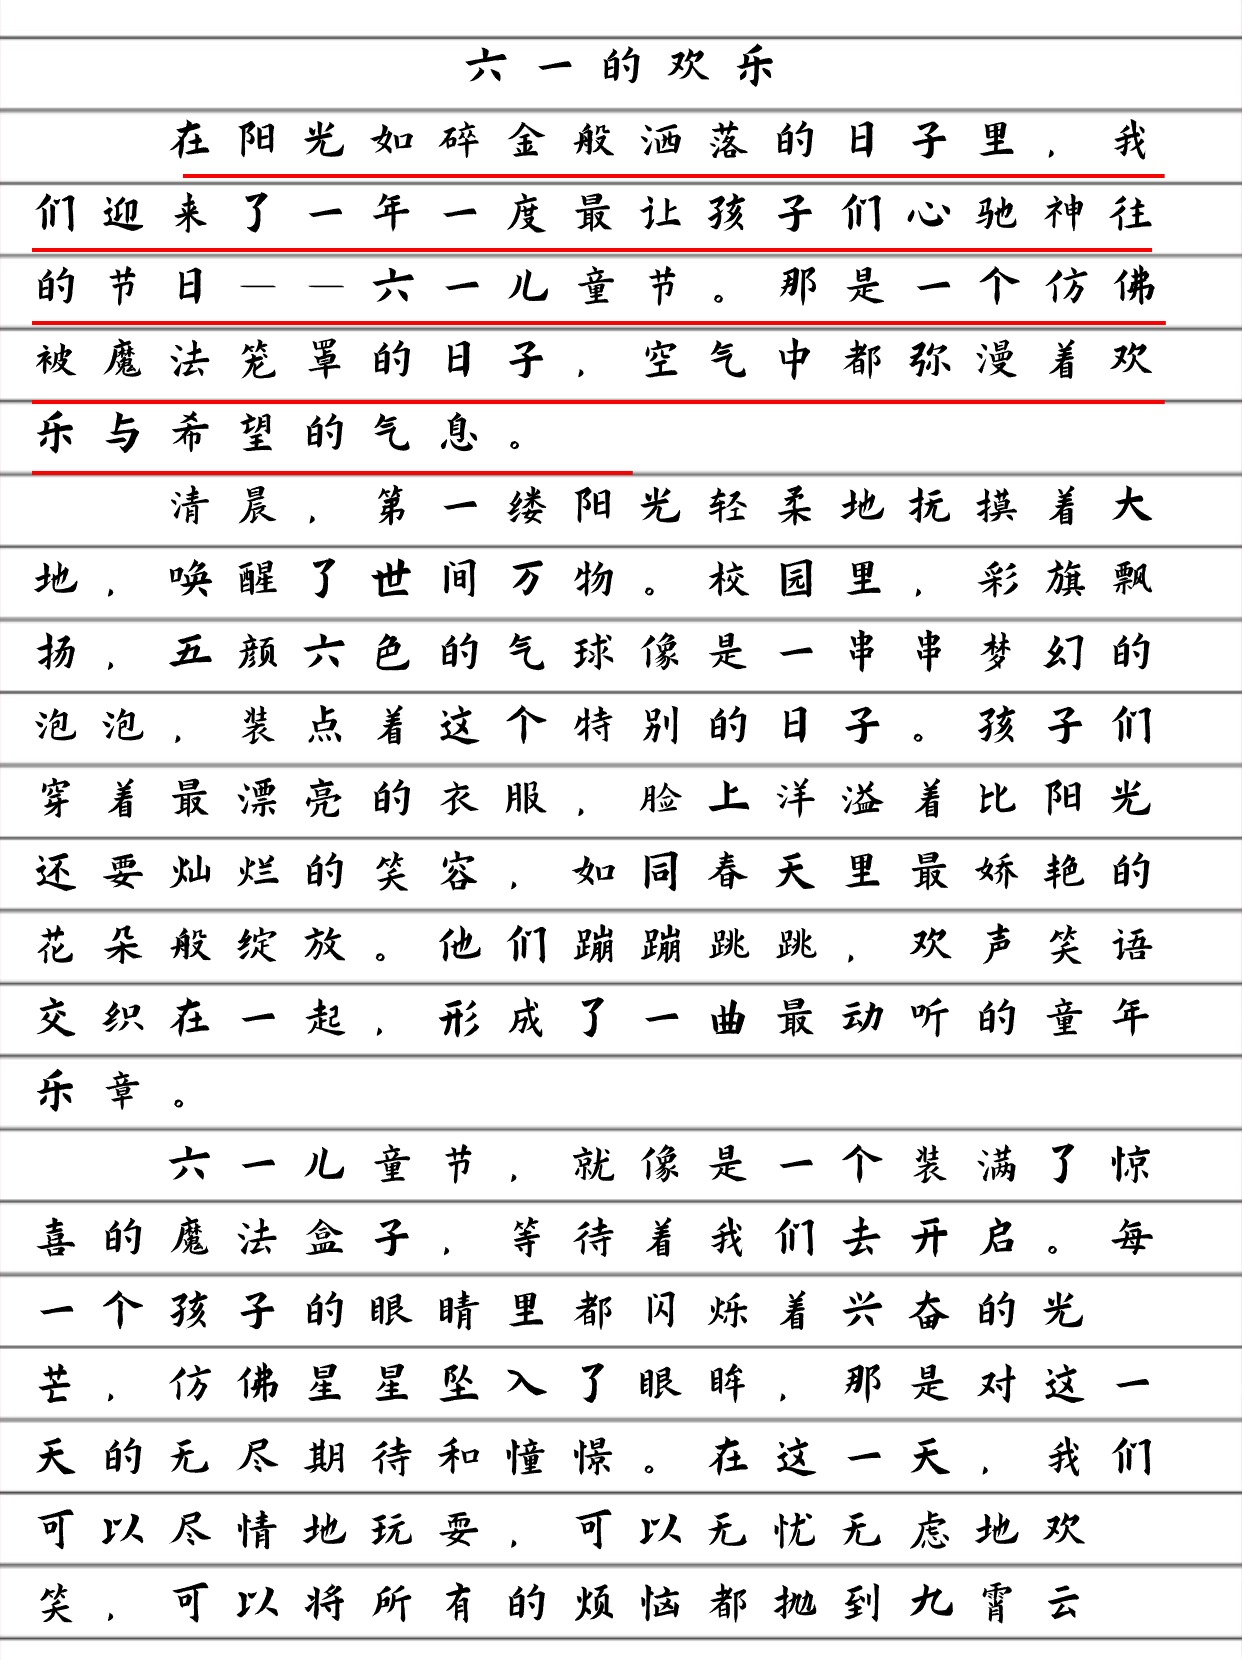 六一的欢乐
在阳光如碎金般洒落的日子里，我
们迎来了一年一度最让孩子们心驰神往
的节日——六一儿童节。那是一个仿佛
被魔法笼罩的日子，空气中都弥漫着欢
乐与希望的气息。
清晨，第一缕阳光轻柔地抚摸着大
地，唤醒了世间万物。校园里，彩旗飘
扬，五颜六色的气球像是一串串梦幻的
泡泡，装点着这个特别的日子。孩子们
穿着最漂亮的衣服，脸上洋溢着比阳光
还要灿烂的笑容，如同春天里最娇艳的
花朵般绽放。他们蹦蹦跳跳，欢声笑语
交织在一起，形成了一曲最动听的童年
乐章。
六一儿童节，就像是一个装满了惊
喜的魔法盒子，等待着我们去开启。每
一个孩子的眼睛里都闪烁着兴奋的光
芒，仿佛星星坠入了眼眸，那是对这一
天的无尽期待和憧憬。在这一天，我们
可以尽情地玩耍，可以无忧无虑地欢
笑，可以将所有的烦恼都抛到九霄云